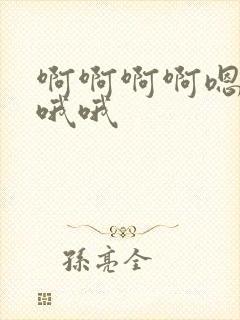 啊啊啊啊嗯
哦哦
孫亮全